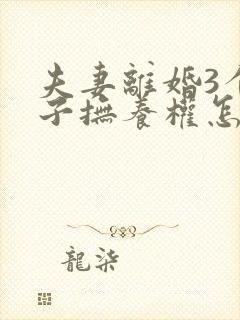 夫妻離婚3個
子撫養權怎
龍柒